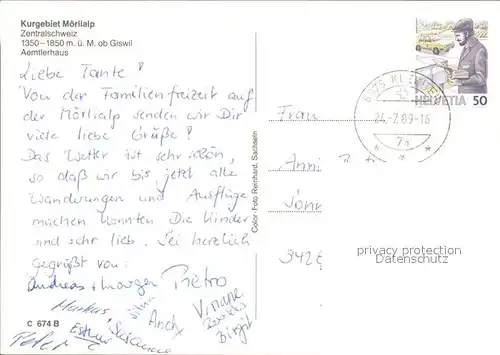 Kurgebiet Mörlialp
Zentralschweiz
1350–1850 m. ü. M. ob Giswil
Aemtlerhaus
Liebe Tante!
Von der Familienfreizeit auf
der Mörlialp senden wir Dir
viele liebe Grüße!
Das Wetter ist sehr schön,
so daß wir bis jetzt alle
Wanderungen und Ausflüge
machen konnten. Die Kinder
sind sehr lieb. Sei herzlich
gegrüßt von:
Andreas + Margar Pietro
Markus Andy Viviane
Esther Susanne Birgit
Peter
C 674 B
Color: Foto Reinhard, Sachseln
HELVETIA 50
24.-7.89-16
Frau
Anni
privacy protection
Datenschutz